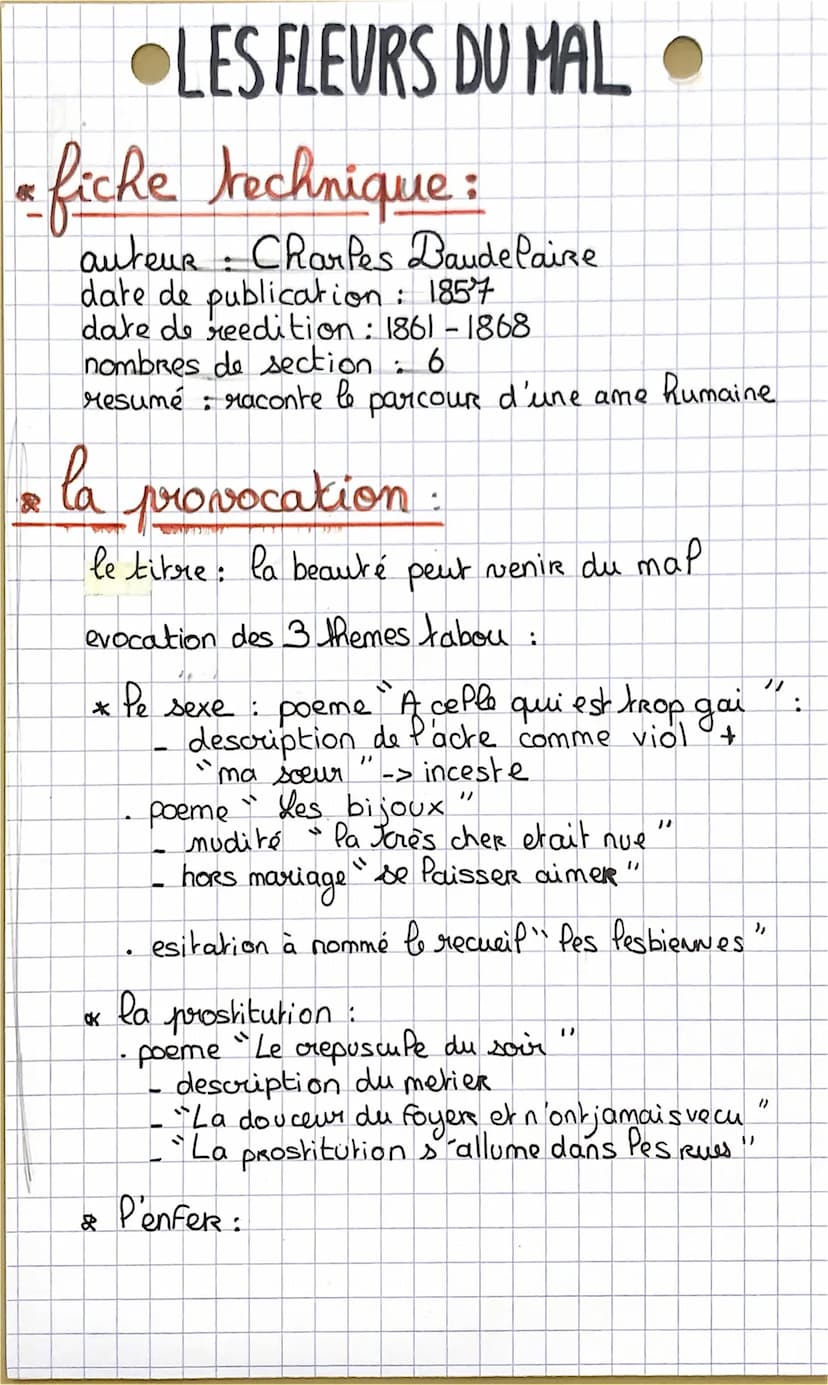 LES FLEURS DU MAL
* fiche technique :
auteur : Charles Baudelaire
date de publication : 1857
date de reedition : 1861 - 1868
nombres de section : 6
resumé : raconte le parcour d'une ame humaine
* la provocation :
le titre : la beauté peut venir du mal
evocation des 3 themes tabou :
* le sexe : poeme "A celle qui est trop gai" :
- description de l'acte comme viol +
"ma sœur" -> inceste
. poeme "Les bijoux"
- nudité "la très cher etait nue"
- hors mariage "se laisser aimer"
. esitation à nommé le recueil "les lesbiennes"
* la prostitution :
. poeme "Le crepuscule du soir"
- description du metier
- "La douceur du foyers et n'ont jamais vecu"
- "La prostitution s'allume dans les rues"
* l'enfer :